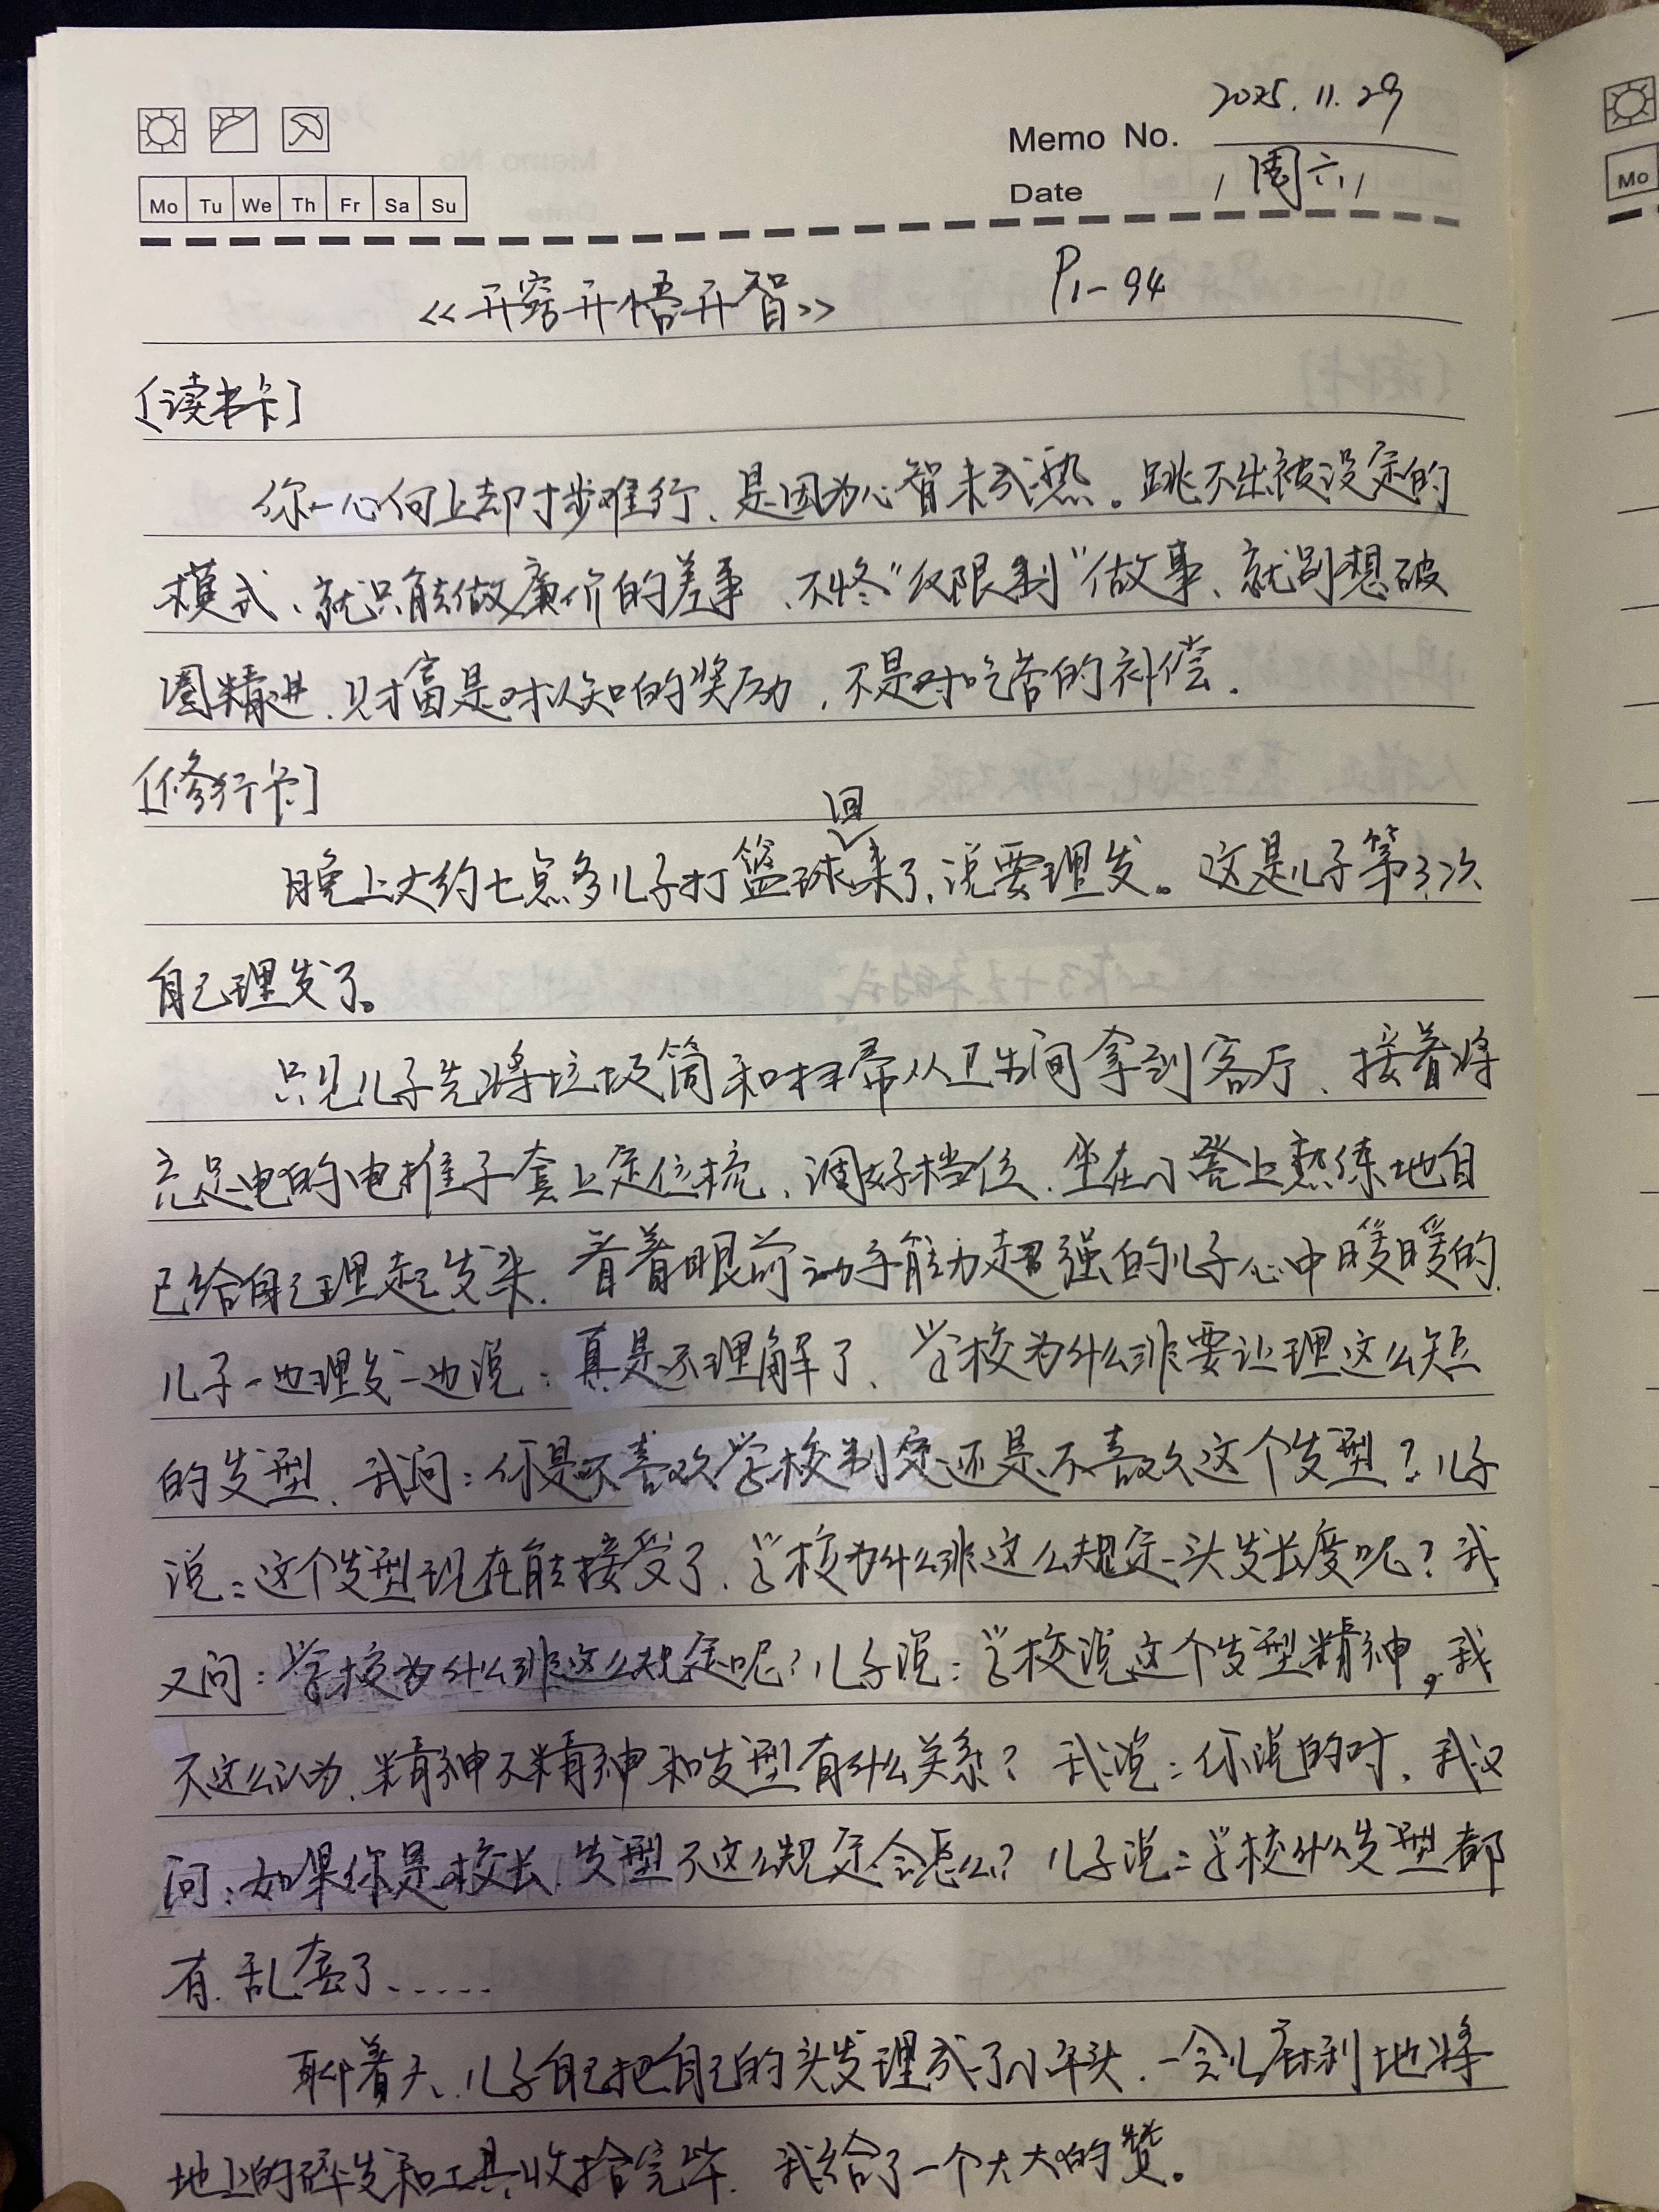 2025.11.29
Memo No.
Date 周六
Mo Tu We Th Fr Sa Su
Mo
《开窍开悟开智》 P1-94
[读书卡]
你一心向上却寸步难行、是因为心智未成熟。跳不出被设定的
模式、就只能做廉价的差事、不终“仅限制”做事、就别想破
圈精进.财富是对认知的奖励,不是对吃苦的补偿.
[修行卡]
晚上大约七点多儿子打篮球回来了,说要理发。这是儿子第3次
自己理发了。
只见儿子先将垃圾筒和扫帚从卫生间拿到客厅、接着将
充足电的电推子套上定位梳、调好档位.坐在小凳上熟练地自
己给自己理起发来.看着眼前动手能力超强的儿子心中暖暖的.
儿子一边理发一边说:真是不理解了、学校为什么非要让理这么短
的发型、我问:你是不喜欢学校制定还是不喜欢这个发型?儿子
说:这个发型现在能接受了.学校为什么非这么规定头发长度呢?我
又问:学校为什么非这么规定呢?儿子说:学校说这个发型精神,我
不这么认为.精神不精神和发型有什么关系?我说:你说的对.我又
问:如果你是校长.发型不这么规定会怎么?儿子说:学校什么发型都
有.乱套了......
聊着天、儿子自己把自己的头发理成了小平头.一会儿麻利地将
地上的碎发和工具收拾完毕.我给了一个大大的赞。